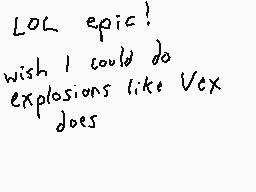 LOL epic!
wish I could do
explosions like Vex
does